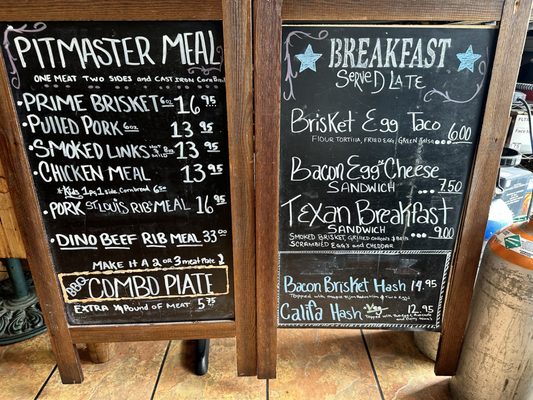 PITMASTER MEAL
ONE MEAT TWO SIDES and CAST IRON Corn
PRIME BRISKET 6oz 16 95
Pulled Pork 6oz 13 95
SMOKED LINKS 13 95
CHICKEN MEAL 13 95
*Kids 1 pc, 1 side, Cornbread 6
PORK ST LOUIS RIB MEAL 16 95
DINO BEEF RIB MEAL 33 00
MAKE IT A 2 OR 3 meat
BBQ COMBO PLATE
EXTRA POUND OF MEAT 5 75
BREAKFAST
SERVED LATE
Brisket Egg Taco 6.00
FLOUR TORTILLA, FRIED EGG, GREEN
Bacon Egg & Cheese
SANDWICH 7.50
Texan Breakfast
SANDWICH 9.00
SMOKED BRISKET, GRILLED ONIONS &
SCRAMBLED EGGS AND CHEDDAR
Bacon Brisket Hash 14.95
Topped with two eggs
Califa Hash 12.95
Topped with